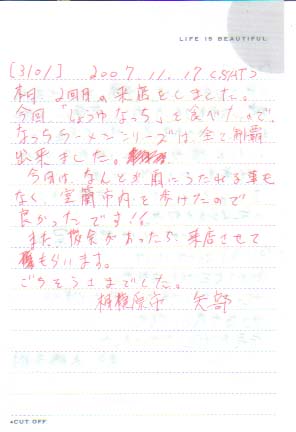 LIFE IS BEAUTIFUL
[3101] 2007.11.17(SAT)
本日、2回目の来店をしました。
今回「しょうゆなっち」を食べたので、
なっちラーメンシリーズは全て制覇
出来ました。
今日は、なんとか雨にうたれる事も
なく、室蘭市内を歩けたので
良かったです!!
また、機会があったら、来店させて
もらいます。
ごちそうさまでした。
相模原市 矢部
◂CUT OFF